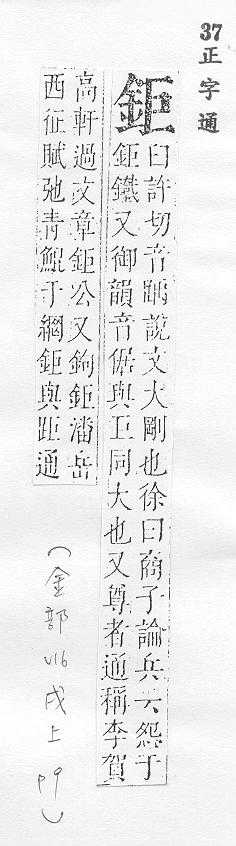 37正字通
鉅
臼許切音踽說文大剛也徐曰商子論兵云怨于
鉅鐵又御韻音倨與巨同大也又尊者通稱李賀
高軒過文章鉅公又鉤鉅潘岳
西征賦弛青鯤于網鉅與距通
(金部 VI6 戌上 P9)